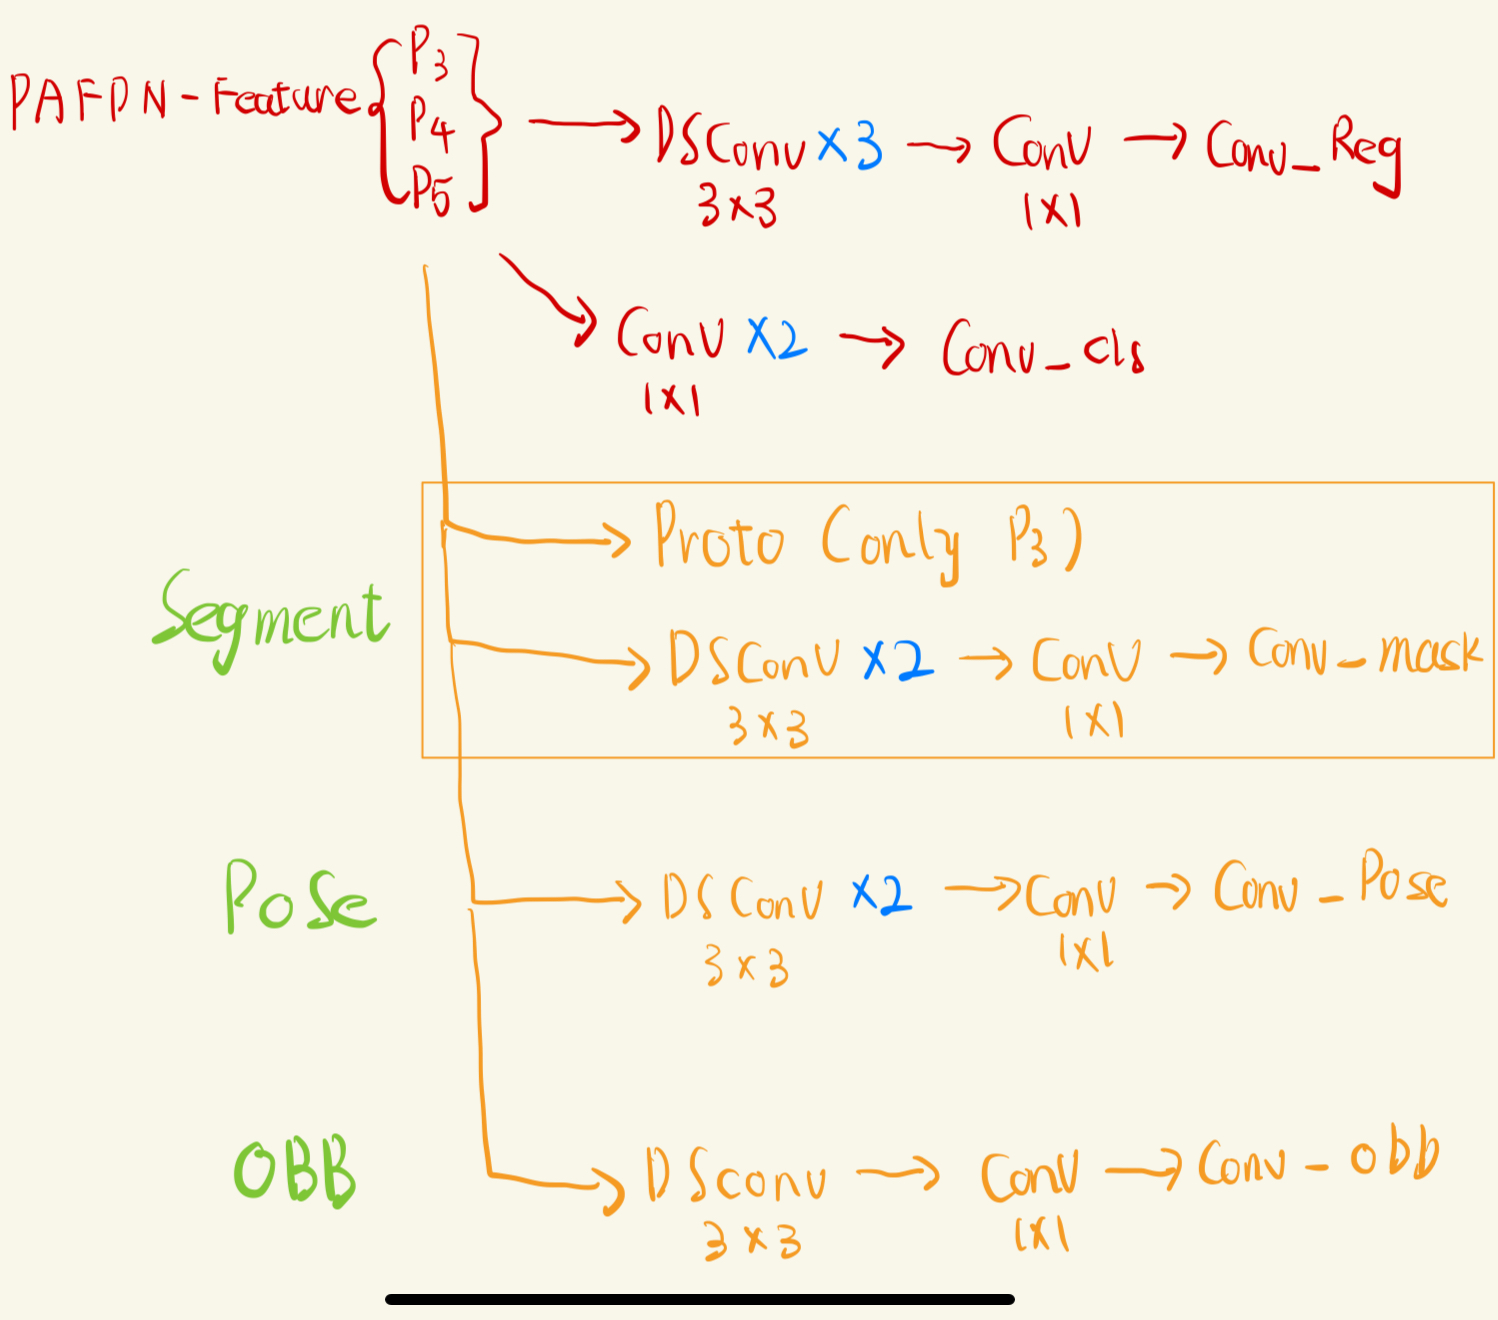 PAFPN-Feature { P3 P4 P5 } → DSConv ×3 → Conv → Conv_Reg
3×3 1×1
Conv ×2 → Conv_cls
1×1
Proto (only P3)
Segment
DSConv ×2 → Conv → Conv_mask
3×3 1×1
Pose DSConv ×2 → Conv → Conv_Pose
3×3 1×1
OBB DSconv → Conv → Conv_obb
3×3 1×1